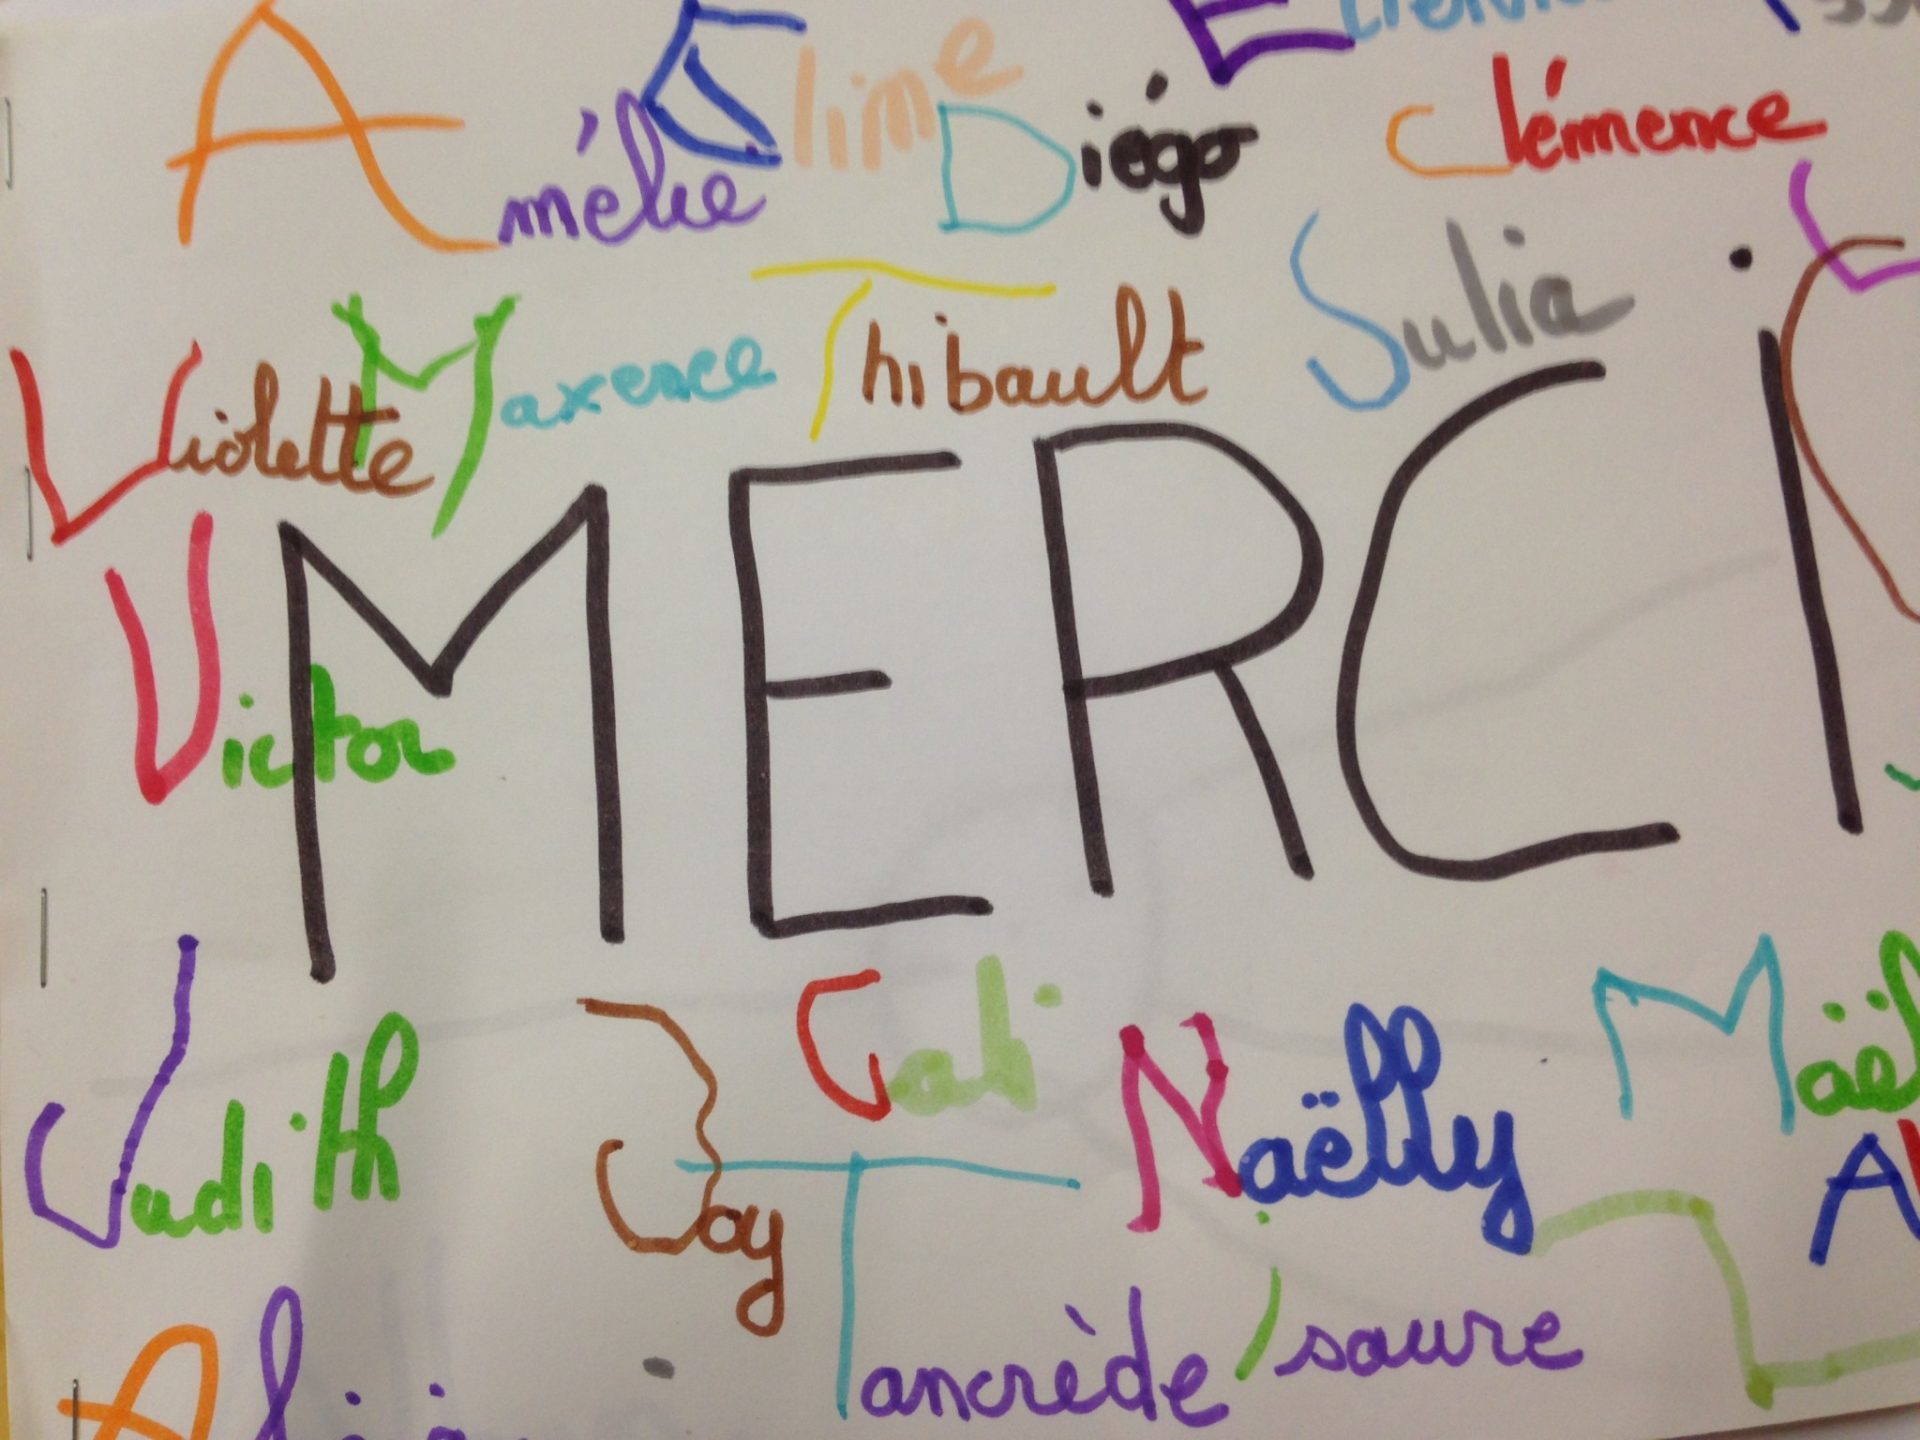 Amélie Eline Diégo Clémence
Violette Maxence Thibault Julia
MERCI
Victor
Judith Joy Cali Naëlly
Tancrède Isaure